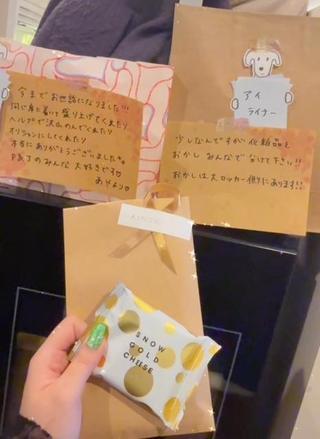 今までお世話になりました!!!
同じ卓に着いて盛り上げてくれたり
ヘルプで沢山のんでくれたり
オリシャンにしてくれたり
本当にありがとうございました
みんな 大好きです
あやより
アイ
ライナー
少しなんですが 化粧品と
おかし みんなで わけて下さい!!
おかしは大ロッカー側にあります!!
SNOW
GOLD
CHEESE